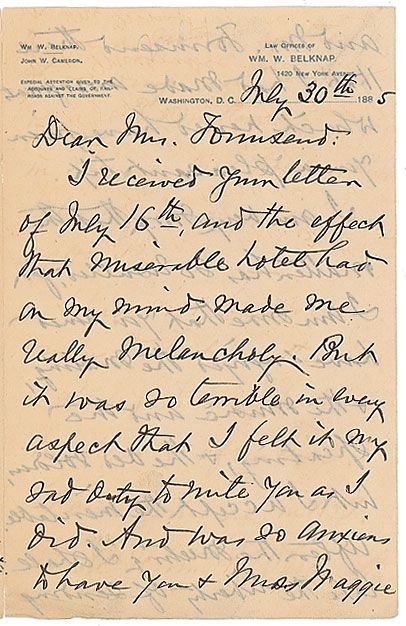 WM W. BELKNAP.
JOHN W. CAMERON.
ESPECIAL ATTENTION GIVEN TO THE
ACCOUNTS AND CLAIMS OF RAIL-
ROADS AGAINST THE GOVERNMENT.
LAW OFFICES OF
WM. W. BELKNAP,
1420 NEW YORK AVENUE,
WASHINGTON, D. C. July 30th 1885
Dear Mrs. Townsend:
I received your letter
of July 16th, and the effect
that miserable hotel had
on my mind, made me
really melancholy. But
it was so terrible in every
aspect that I felt it my
sad duty to write you as I
did. And was so anxious
to have you & Miss Maggie